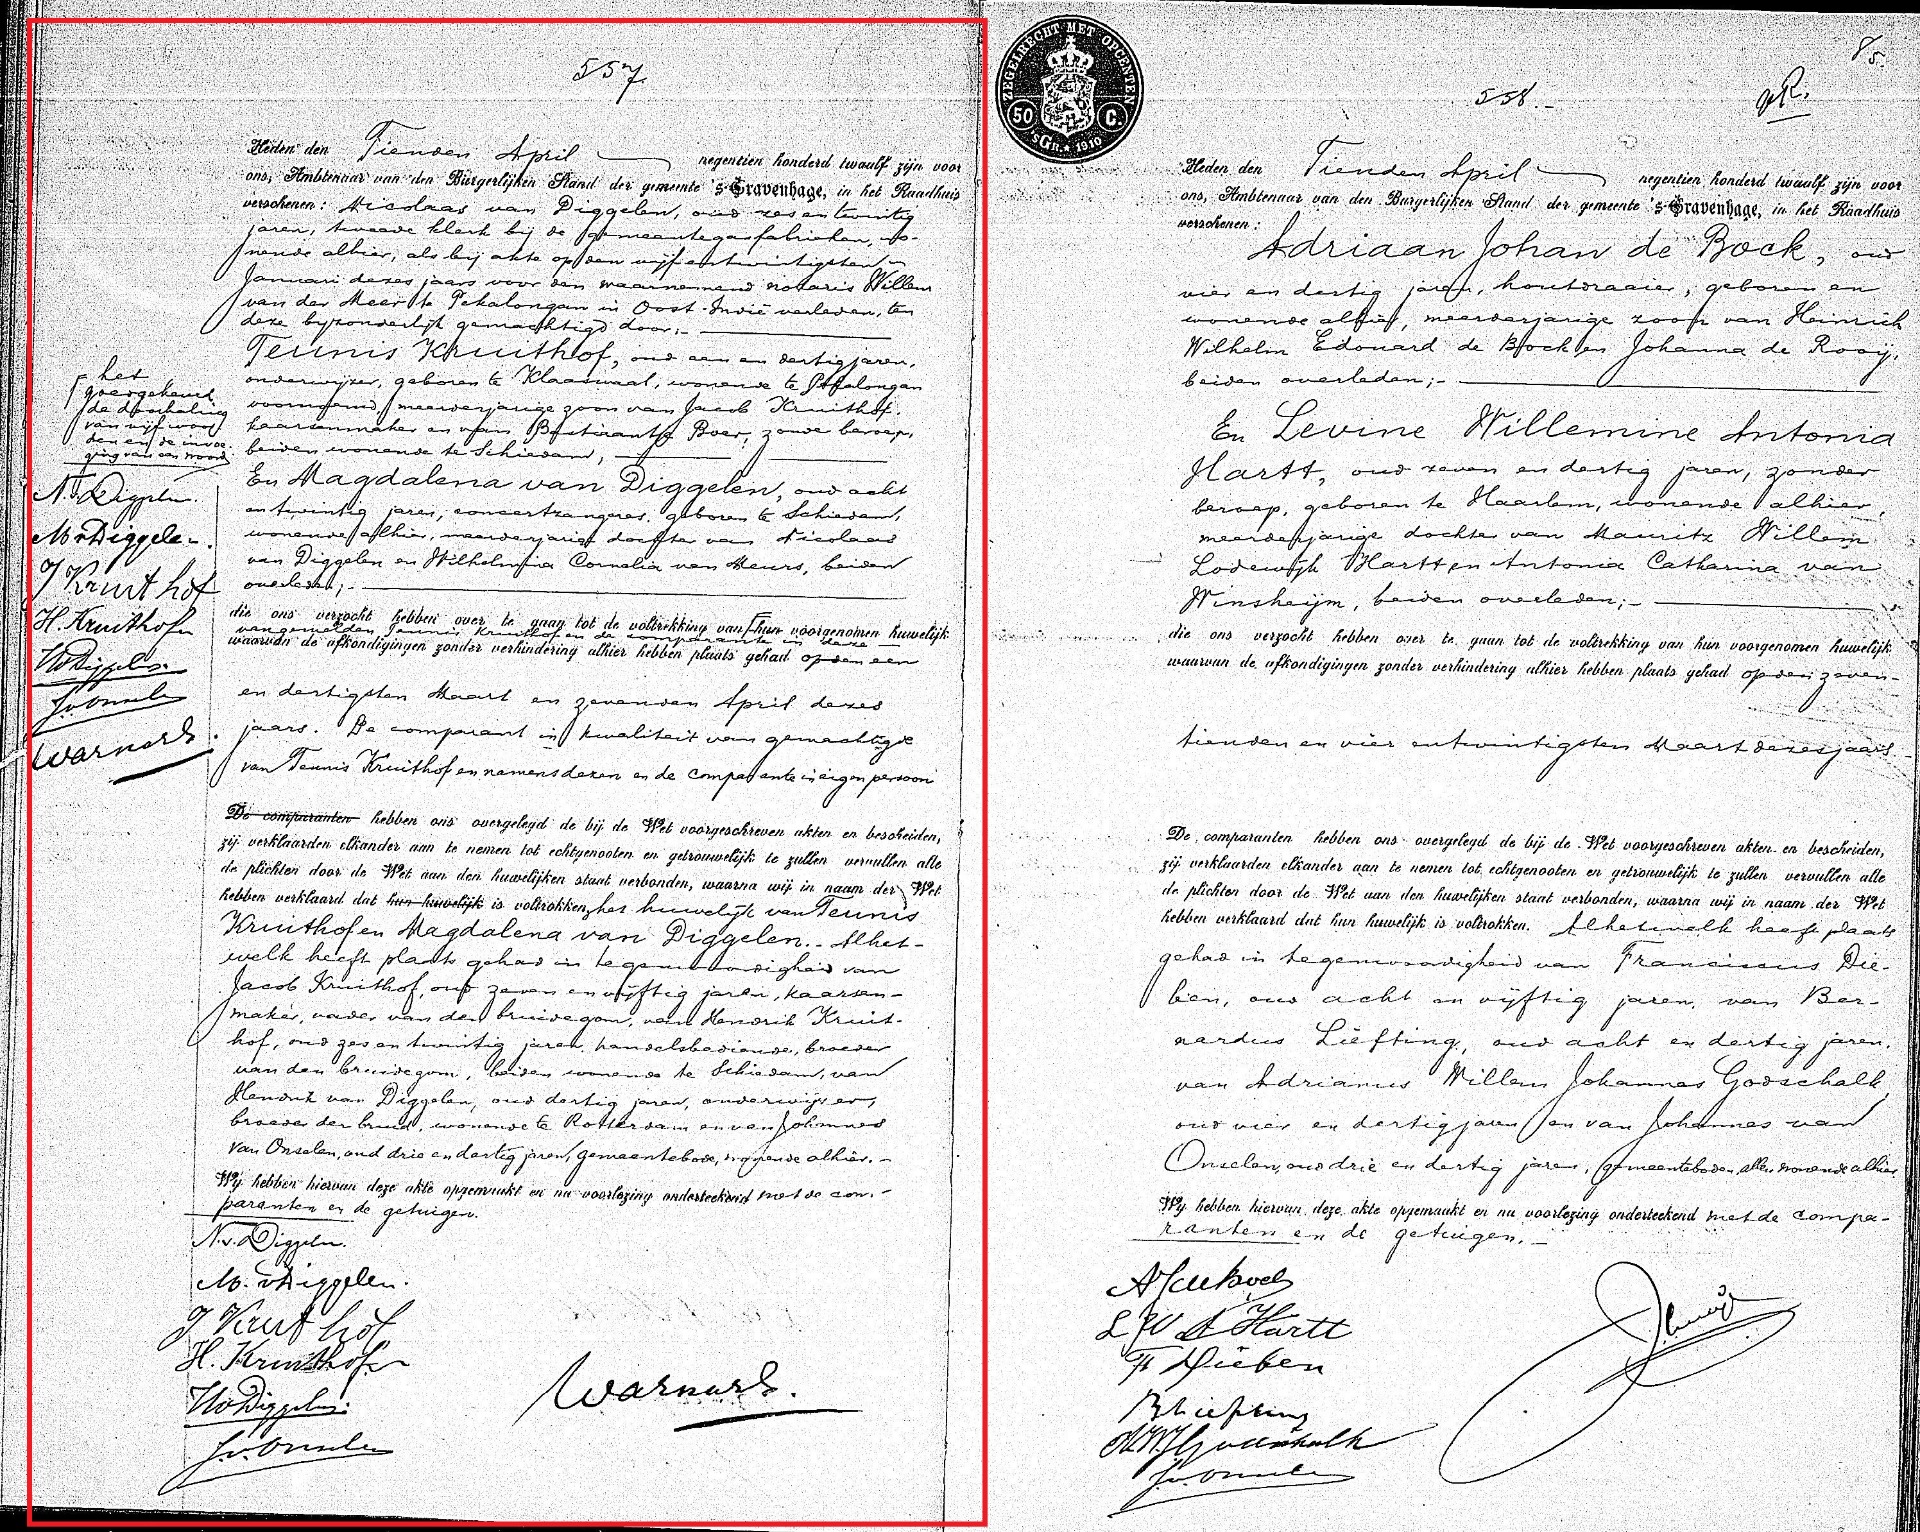 557.
Heden den Tienden April negentien honderd twaalf zijn voor
ons, Ambtenaar van den Burgerlijken Stand der gemeente 's Gravenhage, in het Raadhuis
verschenen: Nicolaas van Diggelen, oud zes en twintig
jaren, tweede klerk bij de gemeentegasfabrieken, wo-
nende alhier, als bij akte op den vijf en twintigsten
Januari dezes jaars voor den waarnemend notaris Willem
van der Meer te Pekalongan in Oost-Indië verleden, ten
deze byzonderlijk gemachtigd door:-
Teunis Kruithof, oud een en dertig jaren,
onderwijzer, geboren te Klaaswaal, wonende te Pekalongan
voornoemd, meerderjarige zoon van Jacob Kruithof,
kaarsenmaker en van Bastiaantje Boer, zonder beroep,
beiden wonende te Schiedam,
En Magdalena van Diggelen, oud acht
en twintig jaren, concertzangeres, geboren te Schiedam,
wonende alhier, meerderjarige dochter van Nicolaas
van Diggelen en Wilhelmina Cornelia van Meurs, beiden
overleden;-
die ons verzocht hebben over te gaan tot de voltrekking van hun voorgenomen huwelijk
van gemelden Teunis Kruithof en de comparante in deze
waarvan de afkondigingen zonder verhindering alhier hebben plaats gehad op den een
en dertigsten Maart en zevenden April dezes
jaars. De comparant in kwaliteit van gemachtigde
van Teunis Kruithof en namens dezen en de comparante in eigen persoon
De comparanten hebben ons overgelegd de bij de Wet voorgeschreven akten en bescheiden,
zij verklaarden elkander aan te nemen tot echtgenooten en getrouwelijk te zullen vervullen alle
de plichten door de Wet aan den huwelijken staat verbonden, waarna wij in naam der Wet
hebben verklaard dat hun huwelijk is voltrokken, het huwelijk van Teunis
Kruithof en Magdalena van Diggelen.- Alhet-
welk heeft plaats gehad in tegenwoordigheid van
Jacob Kruithof, oud zeven en vijftig jaren, kaarsen-
maker, vader van den bruidegom, van Hendrik Kruit-
hof, oud zes en twintig jaren, handelsbediende, broeder
van den bruidegom, beiden wonende te Schiedam, van
Hendrik van Diggelen, oud dertig jaren, onderwijzer,
broeder der bruid, wonende te Rotterdam en van Johannes
van Onselen, oud drie en dertig jaren, gemeentebode, wonende alhier.-
Wij hebben hiervan deze akte opgemaakt en na voorlezing onderteekend met de com-
paranten en de getuigen.
N. v. Diggelen.
M. v Diggelen.
J Kruithof
H. Kruithof
H v Diggelen.
J. v. Onselen
Warnars.
het
goedgekeurd
de doorhaling
van vijf woor
den en de invoe-
ging van een woord
N. v. Diggelen.
M v Diggelen.
J Kruithof
H. Kruithof
H v Diggelen.
J. v. Onselen
Warnars.
ZEGELRECHT MET OPCENTEN
50 C.
'sGr. * 1910
85.
558.-
Heden den Tienden April negentien honderd twaalf zijn voor
ons, Ambtenaar van den Burgerlijken Stand der gemeente 's Gravenhage, in het Raadhuis
verschenen:
Adriaan Johan de Bock, oud
vier en dertig jaren, houtdraaier, geboren en
wonende alhier, meerderjarige zoon van Heinrich
Wilhelm Edouard de Bock en Johanna de Rooij,
beiden overleden;-
En Levine Willemine Antonia
Hartt, oud zeven en dertig jaren, zonder
beroep, geboren te Haarlem, wonende alhier,
meerderjarige dochter van Mauritz Willem
Lodewijk Hartt en Antonia Catharina van
Winsheijm, beiden overleden;-
die ons verzocht hebben over te gaan tot de voltrekking van hun voorgenomen huwelijk
waarvan de afkondigingen zonder verhindering alhier hebben plaats gehad op den zeven-
tienden en vier en twintigsten Maart dezes jaars
De comparanten hebben ons overgelegd de bij de Wet voorgeschreven akten en bescheiden,
zij verklaarden elkander aan te nemen tot echtgenooten en getrouwelijk te zullen vervullen alle
de plichten door de Wet aan den huwelijken staat verbonden, waarna wij in naam der Wet
hebben verklaard dat hun huwelijk is voltrokken. Alhetwelk heeft plaats
gehad in tegenwoordigheid van Franciscus Die-
ben, oud acht en vijftig jaren, van Ber-
nardus Liefting, oud acht en dertig jaren,
van Adrianus Willem Johannes Godschalk,
oud vier en dertig jaren en van Johannes van
Onselen, oud drie en dertig jaren, gemeentebode, allen wonende alhier
Wij hebben hiervan deze akte opgemaakt en na voorlezing onderteekend met de compa-
ranten en de getuigen.-
A J de Bock
L W A Hartt
F Dieben
B Liefting
A.W.J Godschalk
J. v. Onselen